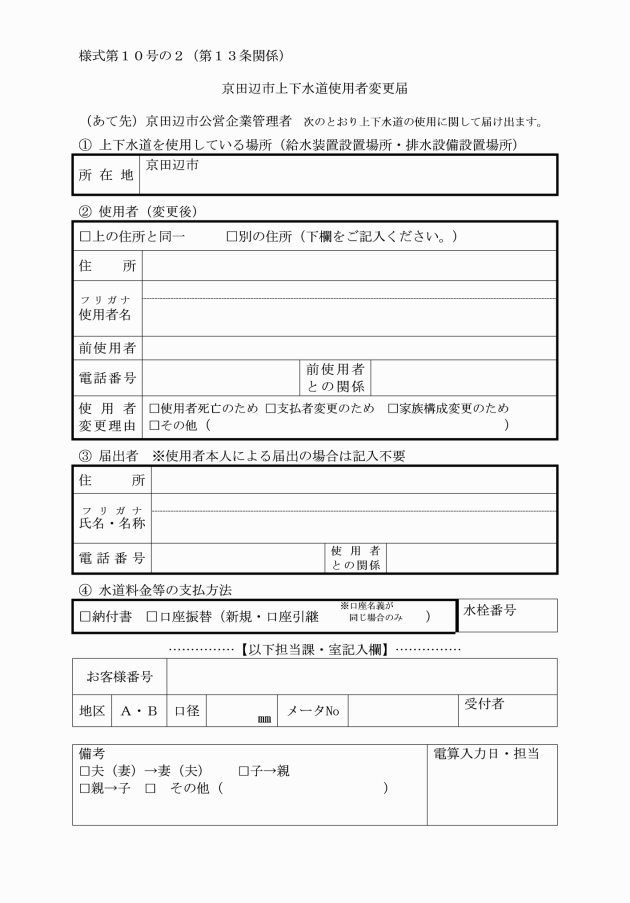 様式第１０号の２（第１３条関係）
京田辺市上下水道使用者変更届
（あて先）京田辺市公営企業管理者　次のとおり上下水道の使用に関して届け出ます。
① 上下水道を使用している場所（給水装置設置場所・排水設備設置場所）
所 在 地　京田辺市
② 使用者（変更後）
□上の住所と同一　　　□別の住所（下欄をご記入ください。）
住　　所
フリガナ
使用者名
前使用者
電話番号　前使用者
との関係
使 用 者　□使用者死亡のため □支払者変更のため　□家族構成変更のため
変更理由　□その他（　　　　　　　　　　　　　　　　　　　　）
③ 届出者　※使用者本人による届出の場合は記入不要
住　　所
フ リ ガ ナ
氏名・名称
電話番号　使 用 者
との関係
④ 水道料金等の支払方法
□納付書　□口座振替（新規・口座引継　※口座名義が
同じ場合のみ　）
水栓番号
……………【以下担当課・室記入欄】……………
お客様番号
地区　Ａ・Ｂ　口径　㎜　メータNo　受付者
備考　電算入力日・担当
□夫（妻）→妻（夫）　　□子→親
□親→子　□　その他（　　　　　　　　　　　　）